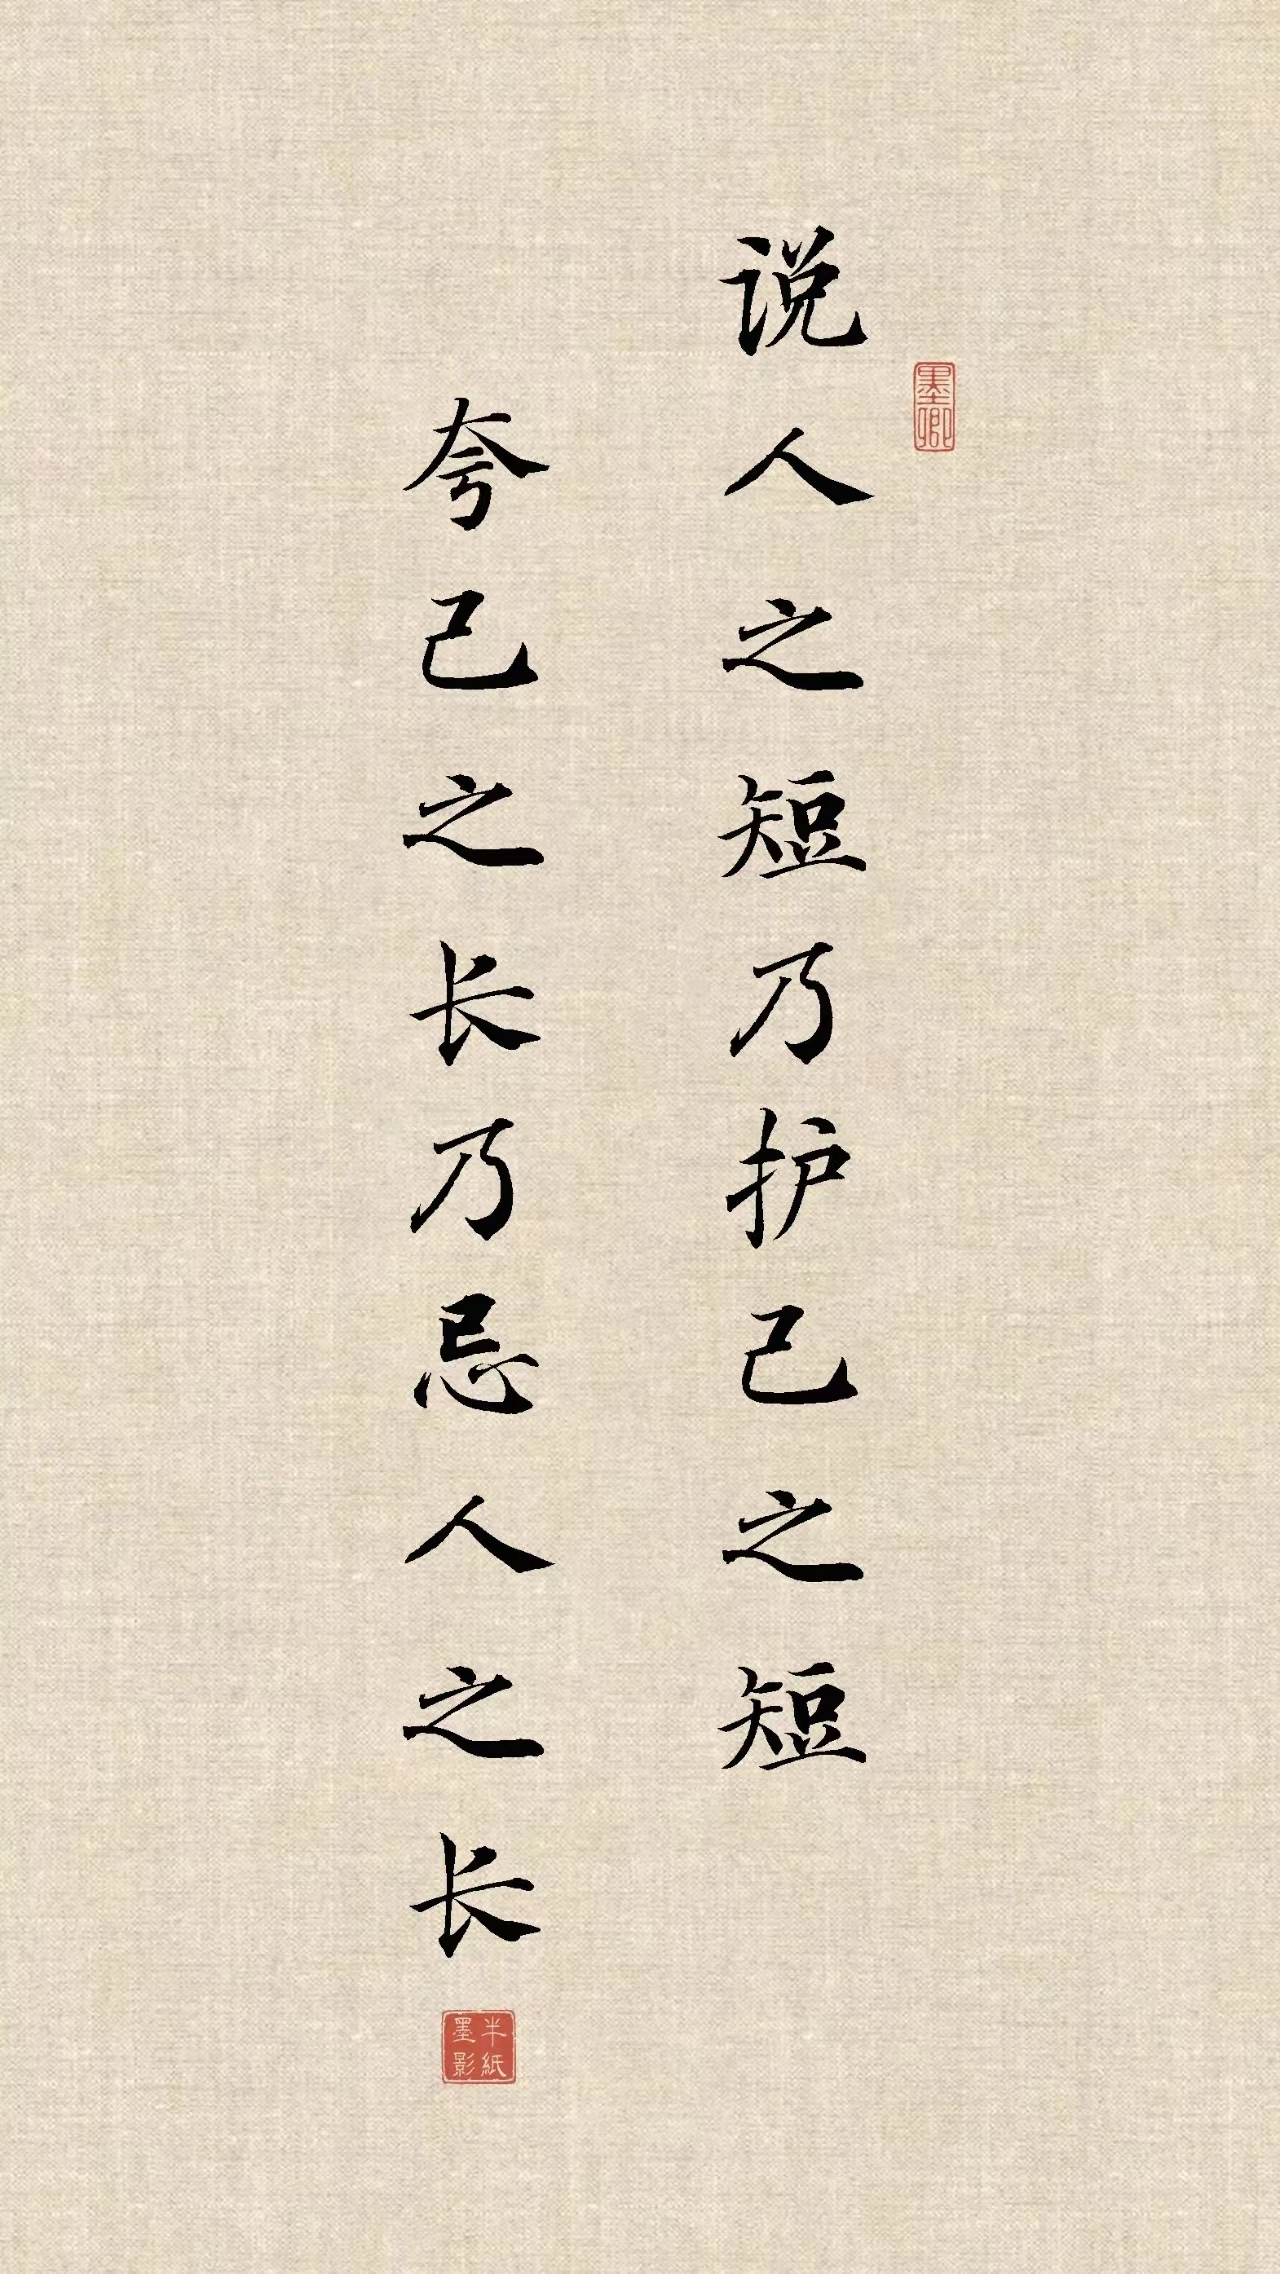 说人之短乃护己之短
墨卿
夸己之长乃忌人之长
半紙
墨影